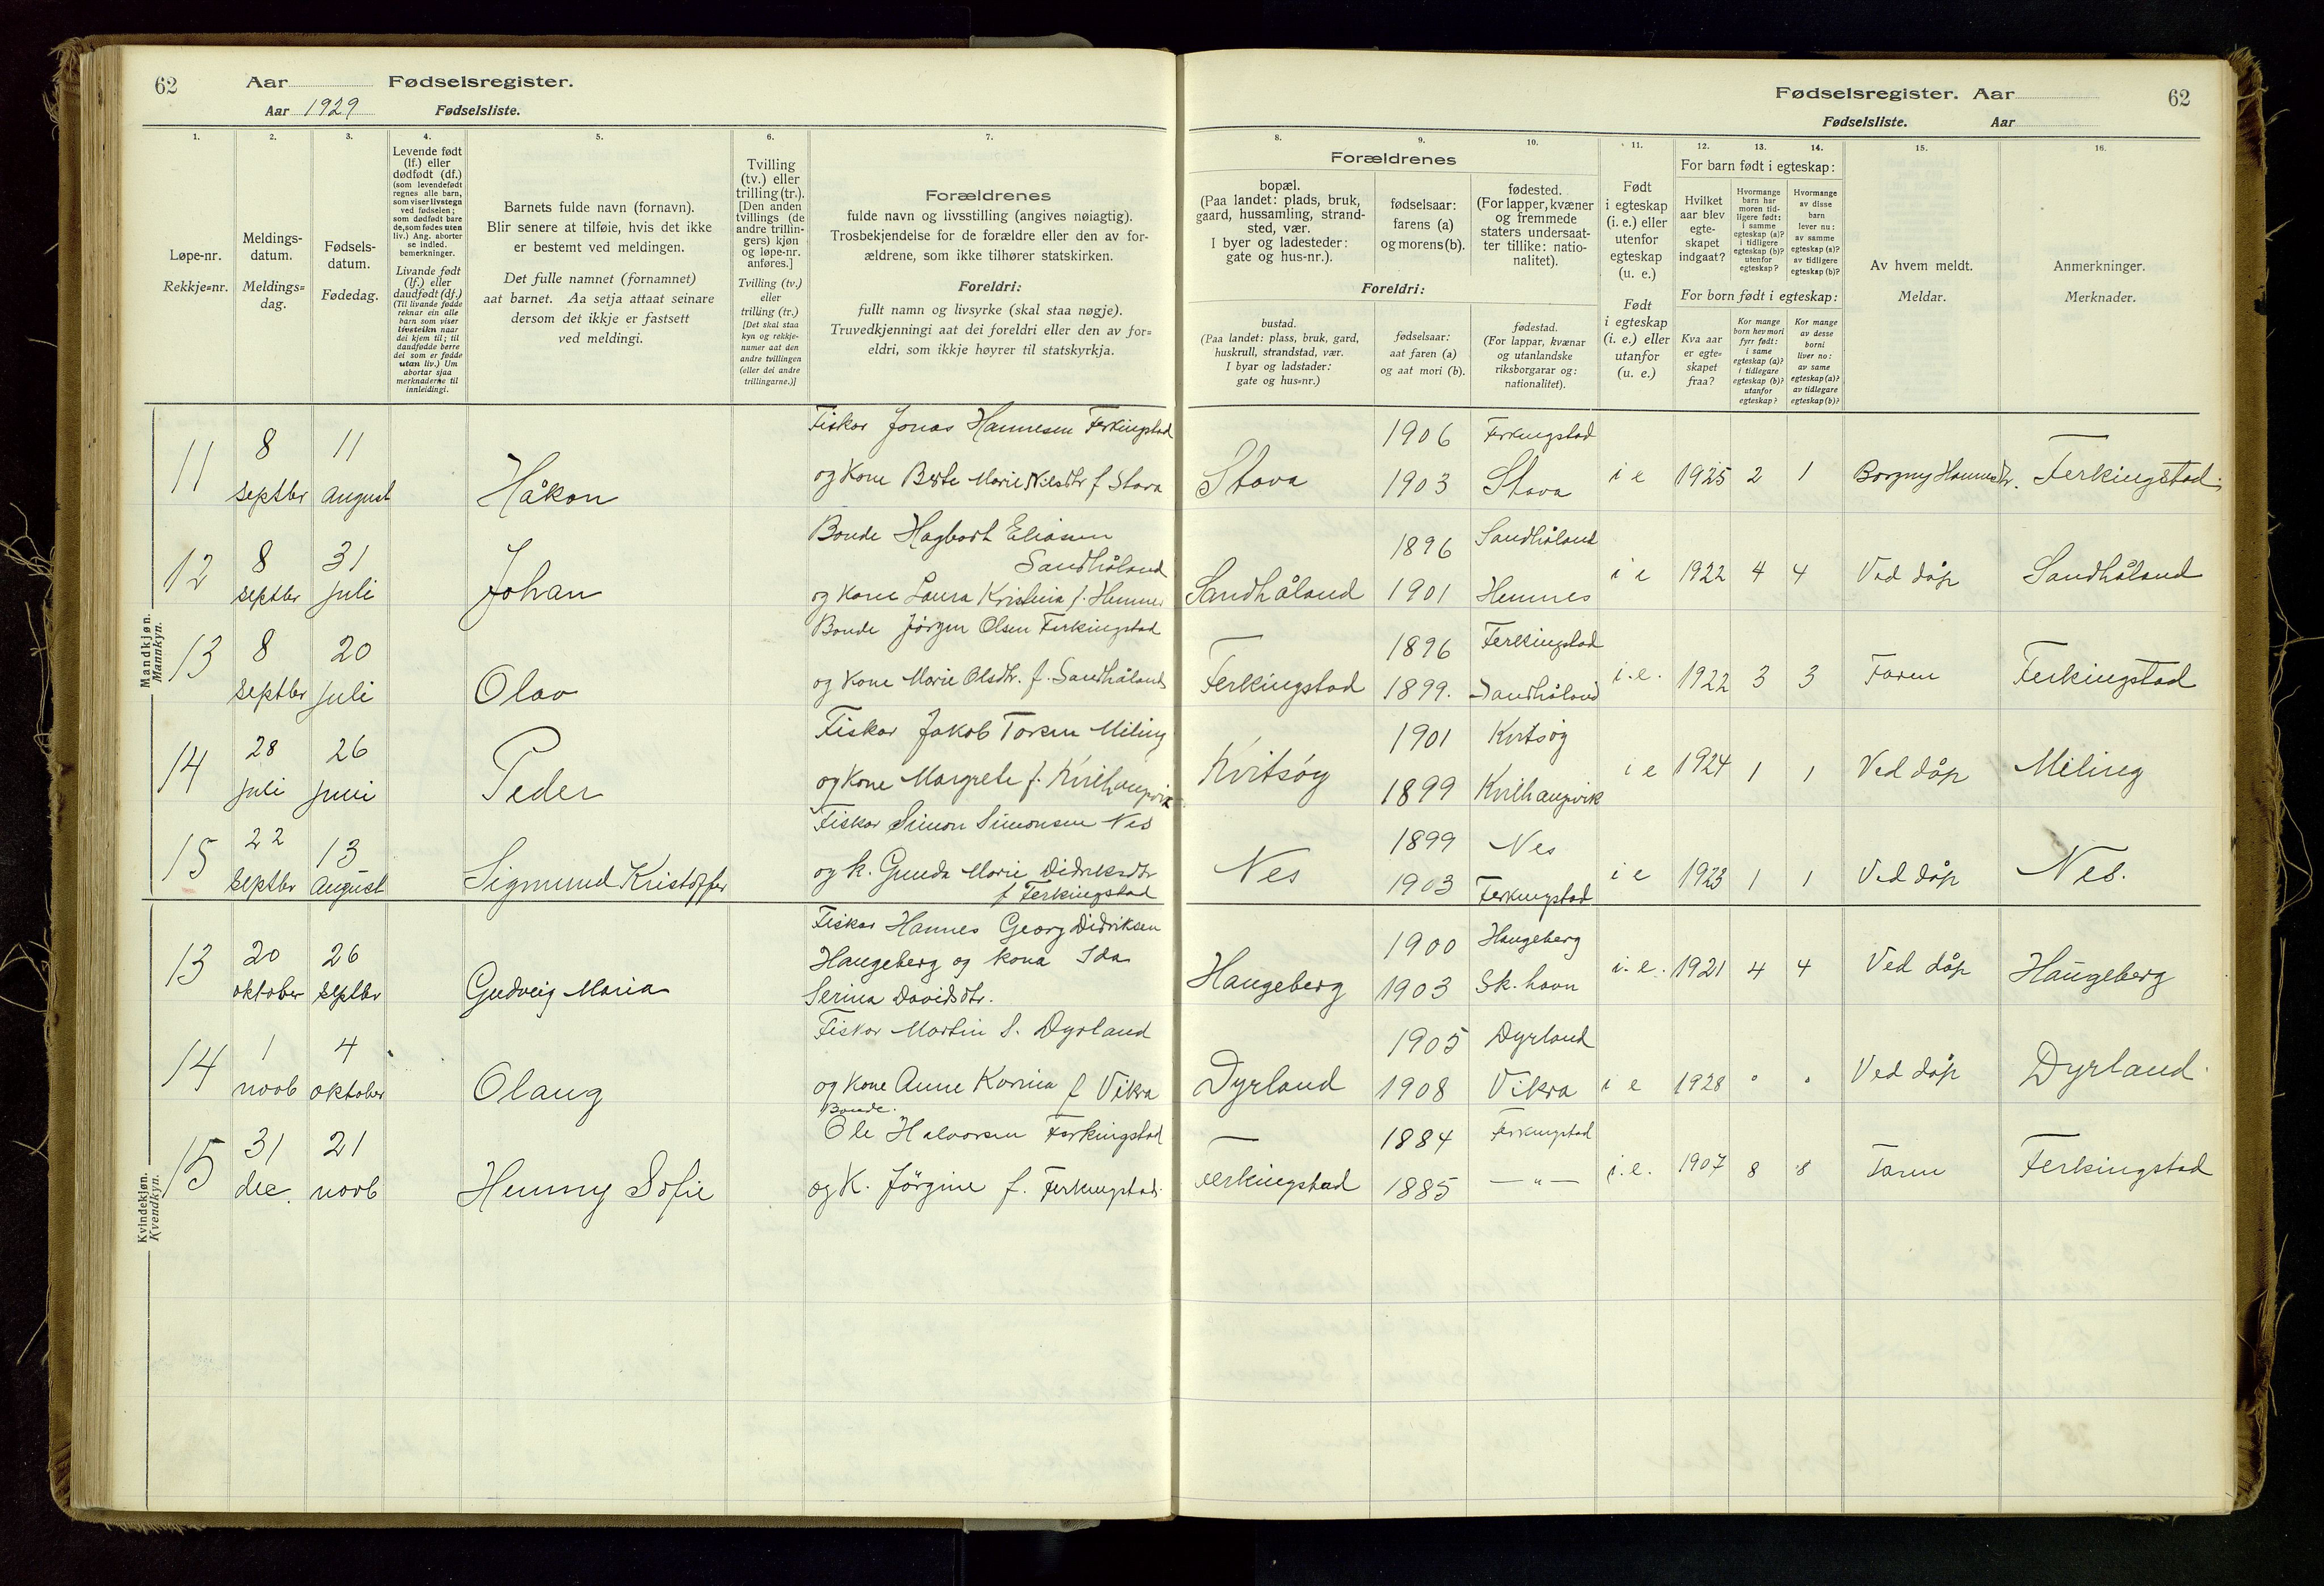 62 Aar Fødselsregister.
Aar 1929 Fødselsliste.
Fødselsregister. Aar 62
Fødselsliste. Aar
1. 2. 3. 4. 5. 6. 7.
Løpe-nr.
Rekkje=nr.
Meldings-
datum.
Meldings=
dag.
Fødsels-
datum.
Fødedag.
Levende født
(lf.) eller
dødfødt (df.)
(som levendefødt
regnes alle barn,
som viser livstegn
ved fødselen;
som dødfødt bare
de, som fødes uten
liv.) Ang. aborter
se indled.
bemerkninger.
Livande født
(lf.) eller
daudfødt (df.)
(Til livande fødde
reknar ein alle
barn som viser
livsteikn naar
dei kjem til; til
daudfødde berre
dei som er fødde
utan liv.) Um
abortar sjaa
merknaderne til
innleidingi.
Barnets fulde navn (fornavn).
Blir senere at tilføie, hvis det ikke
er bestemt ved meldingen.
Det fulle namnet (fornamnet)
aat barnet. Aa setja attaat seinare
dersom det ikkje er fastsett
ved meldingi.
Tvilling
(tv.) eller
trilling (tr.).
[Den anden
tvillings (de
andre trillin-
gers) kjøn
og løpe-nr.
anføres.]
Tvilling (tv.)
eller
trilling (tr.)
[Det skal staa
kyn og rekkje-
numer aat den
andre tvillingen
(eller dei andre
trillingarne.)]
Forældrenes
fulde navn og livsstilling (angives nøiagtig).
Trosbekjendelse for de forældre eller den av for-
ældrene, som ikke tilhører statskirken.
Foreldri:
fullt namn og livsyrke (skal staa nøgje).
Truvedkjenningi aat dei foreldri eller den av for=
eldri, som ikkje høyrer til statskyrkja.
8. 9. 10. 11. 12. 13. 14. 15. 16.
Forældrenes
bopæl.
(Paa landet: plads, bruk,
gaard, hussamling, strand-
sted, vær.
I byer og ladesteder:
gate og hus-nr.).
fødselsaar:
farens (a)
og morens (b).
fødested.
(For lapper, kvæner
og fremmede
staters undersaat-
ter tillike: natio-
nalitet).
Foreldri:
bustad.
(Paa landet: plass, bruk, gard,
huskrull, strandstad, vær.
I byar og ladstader:
gate og hus=nr.)
fødselsaar:
aat faren (a)
og aat mori (b).
fødestad.
(For lappar, kvænar
og utanlandske
riksborgarar og:
nationalitet).
Født
i egteskap
(i. e.) eller
utenfor
egteskap
(u. e.)
Født
i egteskap
(i. e.) eller
utanfor
(u. e.)
For barn født i egteskap:
Hvilket
aar blev
egte-
skapet
indgaat?
Hvormange
barn har
moren tid-
ligere født:
i samme
egteskap (a)?
i tidligere
egteskap (b)?
utenfor
egteskap?
Hvormange
av disse
barn
lever nu:
av samme
egteskap (a)?
av tidligere
egteskap (b)?
For born født i egteskap:
Kva aar
er egte=
skapet
fraa?
Kor mange
born hev mori
fyrr født:
i same
egteskap (a)?
i tidlegare
egteskap (b)?
utanfor
egteskap?
Kor mange
av desse
borni
liver no:
av same
egteskap (a)?
av tidlegare
egteskap (b)?
Av hvem meldt.
Meldar.
Anmerkninger.
Merknader.
Mandkjøn.
Mannkyn.
11 8 septbr 11 august Håkon
Fiskar Jonas Hannesen Ferkingstad
og Kone Berte Marie Nilsdtr f Stava
Stava 1906 1903 Ferkingstad Stava i e 1925 2 1 Borgny Hannesdtr. Ferkingstad.
12 8 septbr 31 juli Johan
Bonde Hagbart Eliasen
Sandhåland
og kone Laura Kristina f. Hemnes
Sandhåland 1896 1901 Sandhåland Hemnes i e 1922 4 4 Ved dåp Sandhåland
13 8 septbr 20 juli Olav
Bonde Jörgen Olsen Ferkingstad
og Kone Marie Olsdtr. f. Sandhåland
Ferkingstad 1896 1899. Ferkingstad Sandhåland i. e. 1922 3 3 Faren Ferkingstad
14 28 juli 26 juni Peder
Fiskar Jakob Torsen Miling
og Kone Margrete f. Kvilhaugvik
Kvitsøy 1901 1899 Kvitsøy Kvilhaugvik i e 1924 1 1 Ved dåp Miling
15 22 septbr 13 august Sigmund Kristoffer
Fiskar Simon Simonsen Nes
og k. Gunda Marie Didriksdtr
f Ferkingstad
Nes 1899 1903 Nes Ferkingstad i e 1923 1 1 Ved dåp Nes.
Kvindekjøn.
Kvendkyn.
13 20 oktober 26 septbr Gudveig Maria
Fiskar Hannes Georg Didriksen
Haugeberg og kona Ida
Serina Davidsdtr.
Haugeberg 1900 1903 Haugeberg Sk.havn i. e. 1921 4 4 Ved dåp Haugeberg
14 1 novb 4 oktober Olaug
Fiskar Martin S. Dyrland
og Kone Anne Korina f Vikra
Dyrland 1905 1908 Dyrland Vikra i e 1928 " " Ved dåp Dyrland.
15 31 dec. 21 novb Henny Sofie
Bonde.
Ole Halvorsen Ferkingstad
og K. Jörgine f. Ferkingstad.
Ferkingstad 1884 1885 Ferkingstad — " — i. e. 1907 8 8 Faren Ferkingstad